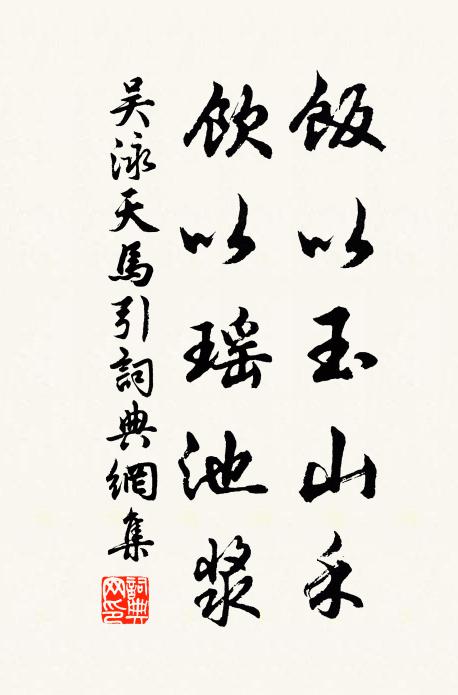 飯以玉山禾
飲以瑶池漿
吴泳天馬引詞典網集
詞典网印